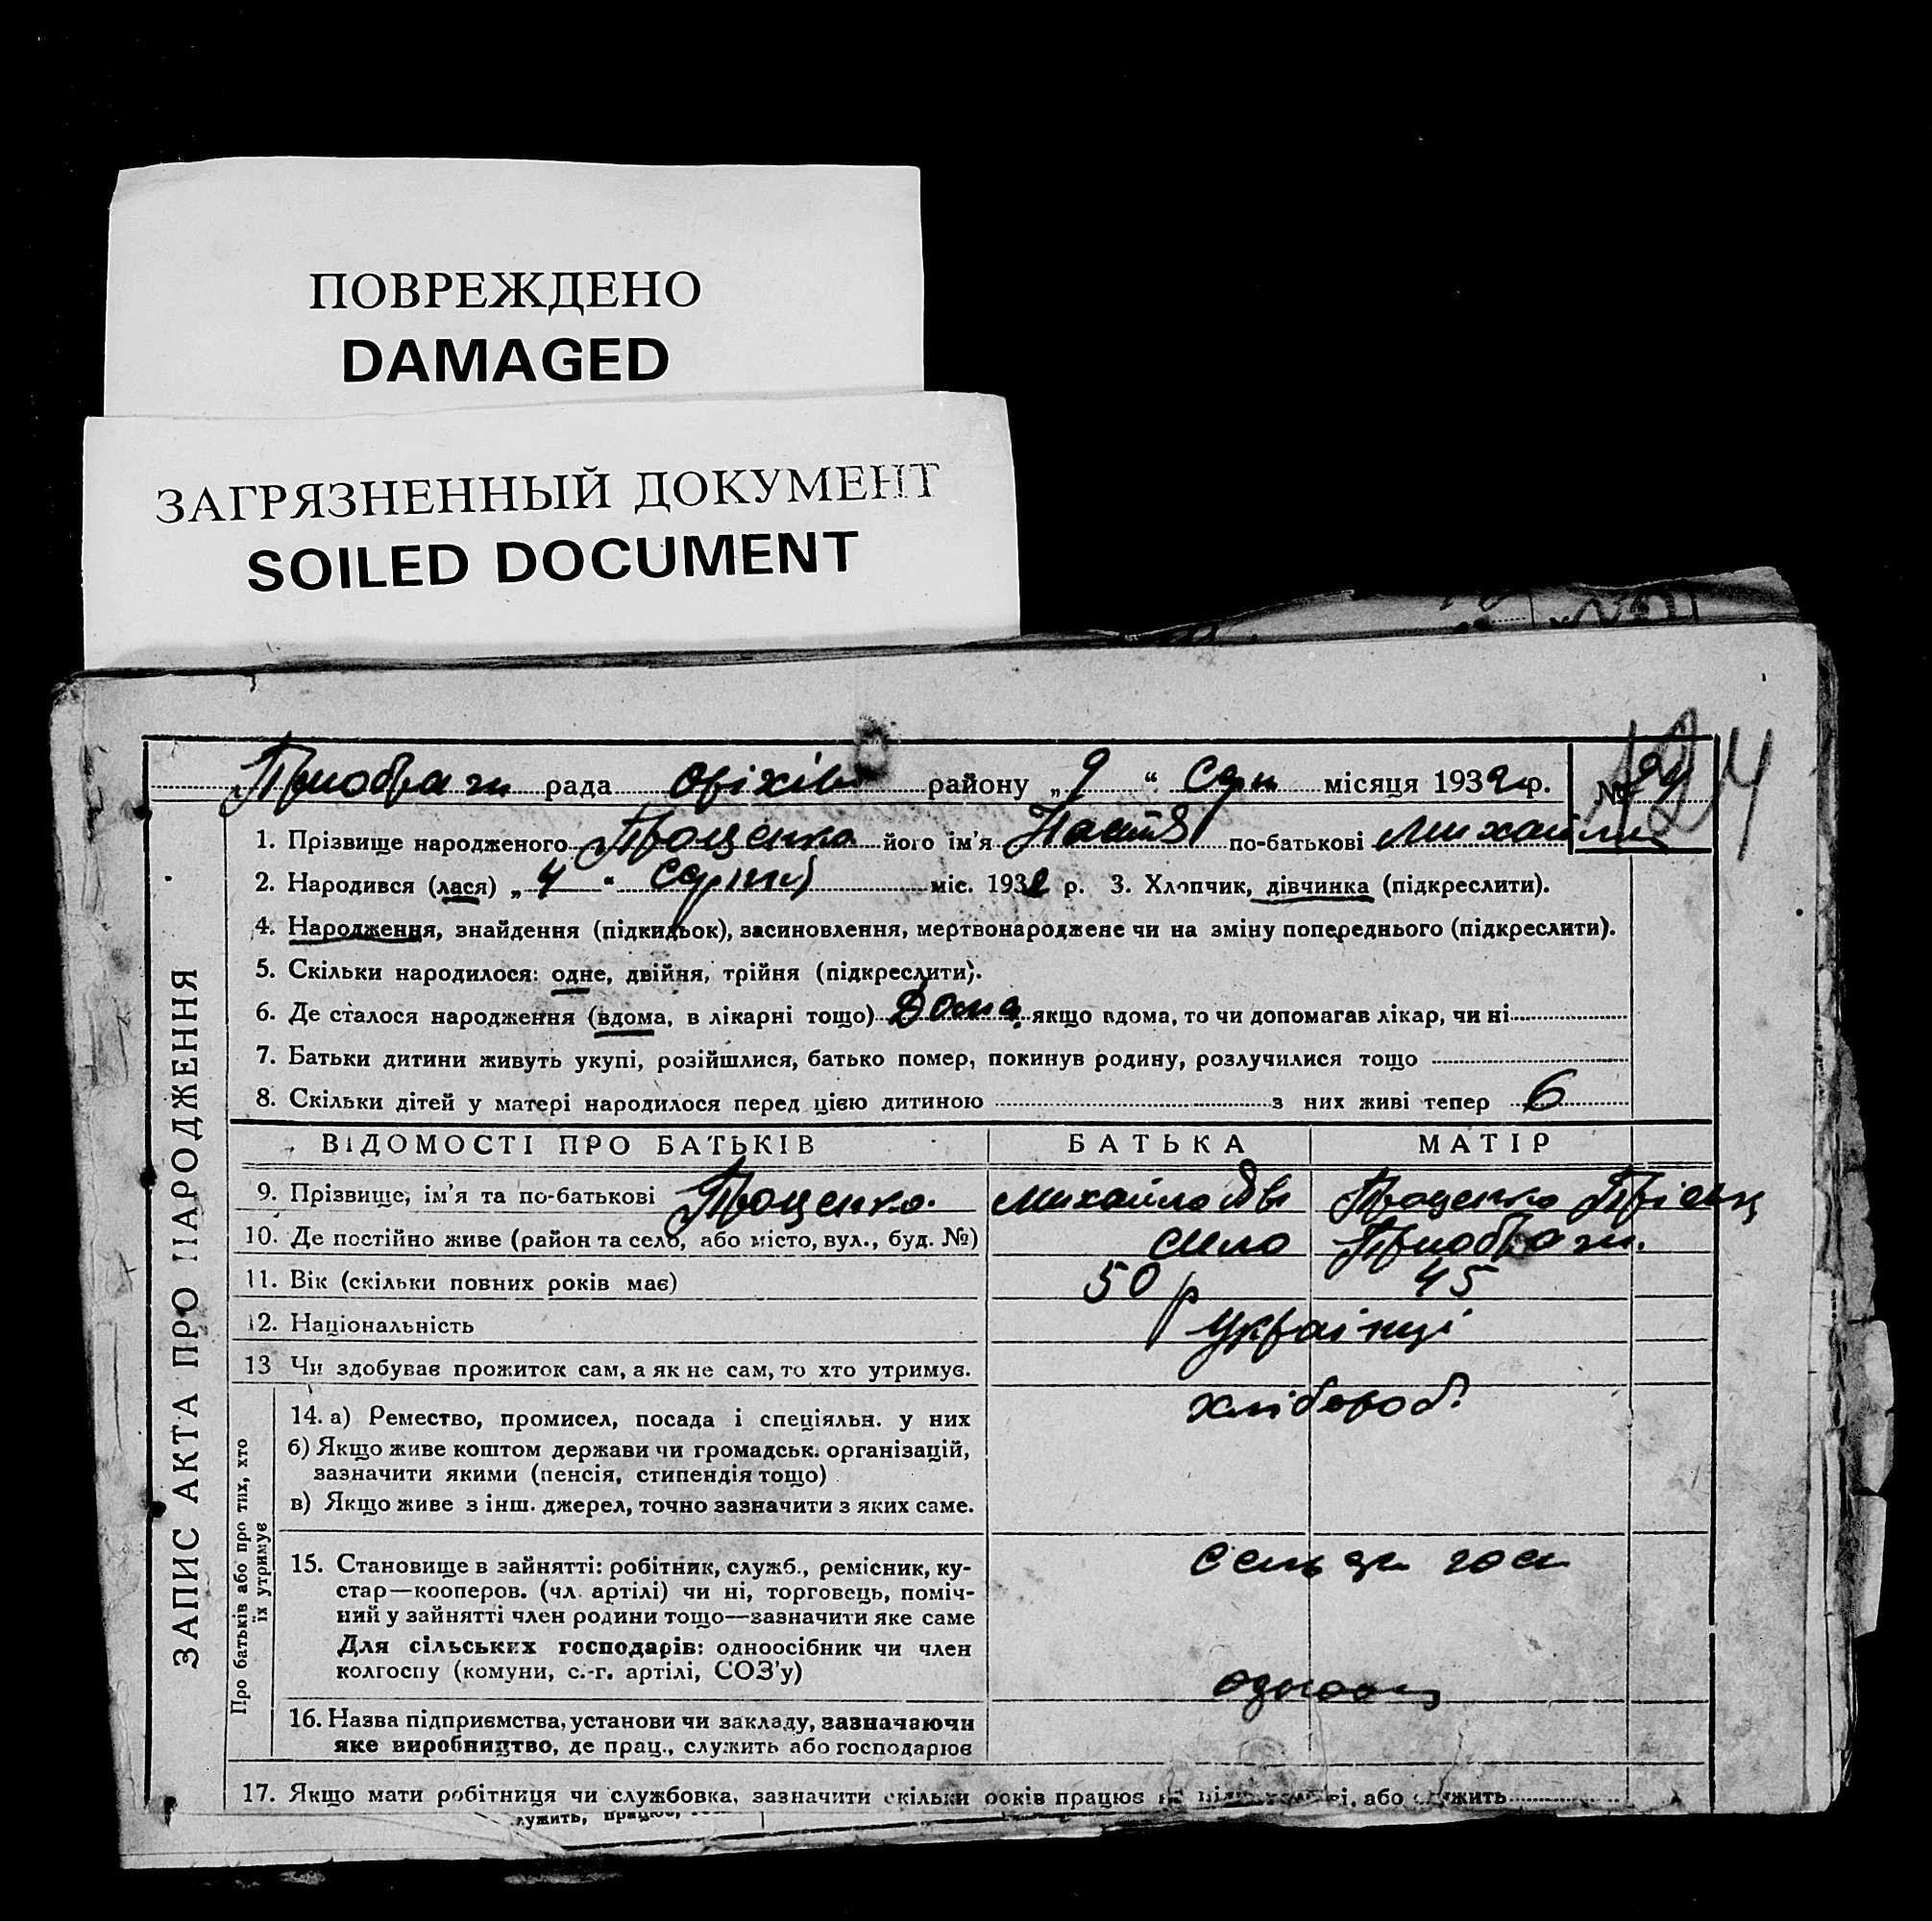 ПОВРЕЖДЕНО
DAMAGED
ЗАГРЯЗНЕННЫЙ ДОКУМЕНТ
SOILED DOCUMENT
124
Приображен рада Оріхів району „9“ Серп місяця 1932 р. №
1. Прізвище народженого Проценко його ім'я Настя по-батькові Михайлів
2. Народився (лася) „4“ Серпня міс. 1932 р. 3. Хлопчик, дівчинка (підкреслити).
4. Народження, знайдення (підкидьок), засиновлення, мертвонароджене чи на зміну попереднього (підкреслити).
5. Скільки народилося: одне, двійня, трійня (підкреслити).
6. Де сталося народження (вдома, в лікарні тощо) Дома якщо вдома, то чи допомагав лікар, чи ні
7. Батьки дитини живуть укупі, розійшлися, батько помер, покинув родину, розлучилися тощо
8. Скільки дітей у матері народилося перед цією дитиною з них живі тепер 6
ВІДОМОСТІ ПРО БАТЬКІВ БАТЬКА МАТІР
9. Прізвище, ім'я та по-батькові Проценко Михайло Проценко
10. Де постійно живе (район та село, або місто, вул., буд. №) село
11. Вік (скільки повних років має) 50 р 45
12. Національність Українці
13 Чи здобуває прожиток сам, а як не сам, то хто утримує.
14. а) Ремество, промисел, посада і спеціяльн. у них хлібороб
б) Якщо живе коштом держави чи громадськ. організацій,
зазначити якими (пенсія, стипендія тощо)
в) Якщо живе з інш. джерел, точно зазначити з яких саме.
15. Становище в зайнятті: робітник, служб., ремісник, ку-
стар—кооперов. (чл. артілі) чи ні, торговець, поміч-
ний у зайнятті член родини тощо—зазначити яке саме
Для сільських господарів: одноосібник чи член
колгоспу (комуни, с.-г. артілі, СОЗ'у)
16. Назва підприємства, установи чи закладу, зазначаючи
яке виробництво, де прац., служить або господарює
17. Якщо мати робітниця чи службовка, зазначити скільки років працює або служить
ЗАПИС АКТА ПРО НАРОДЖЕННЯ
Про батьків або про тих, хто
їх утримує